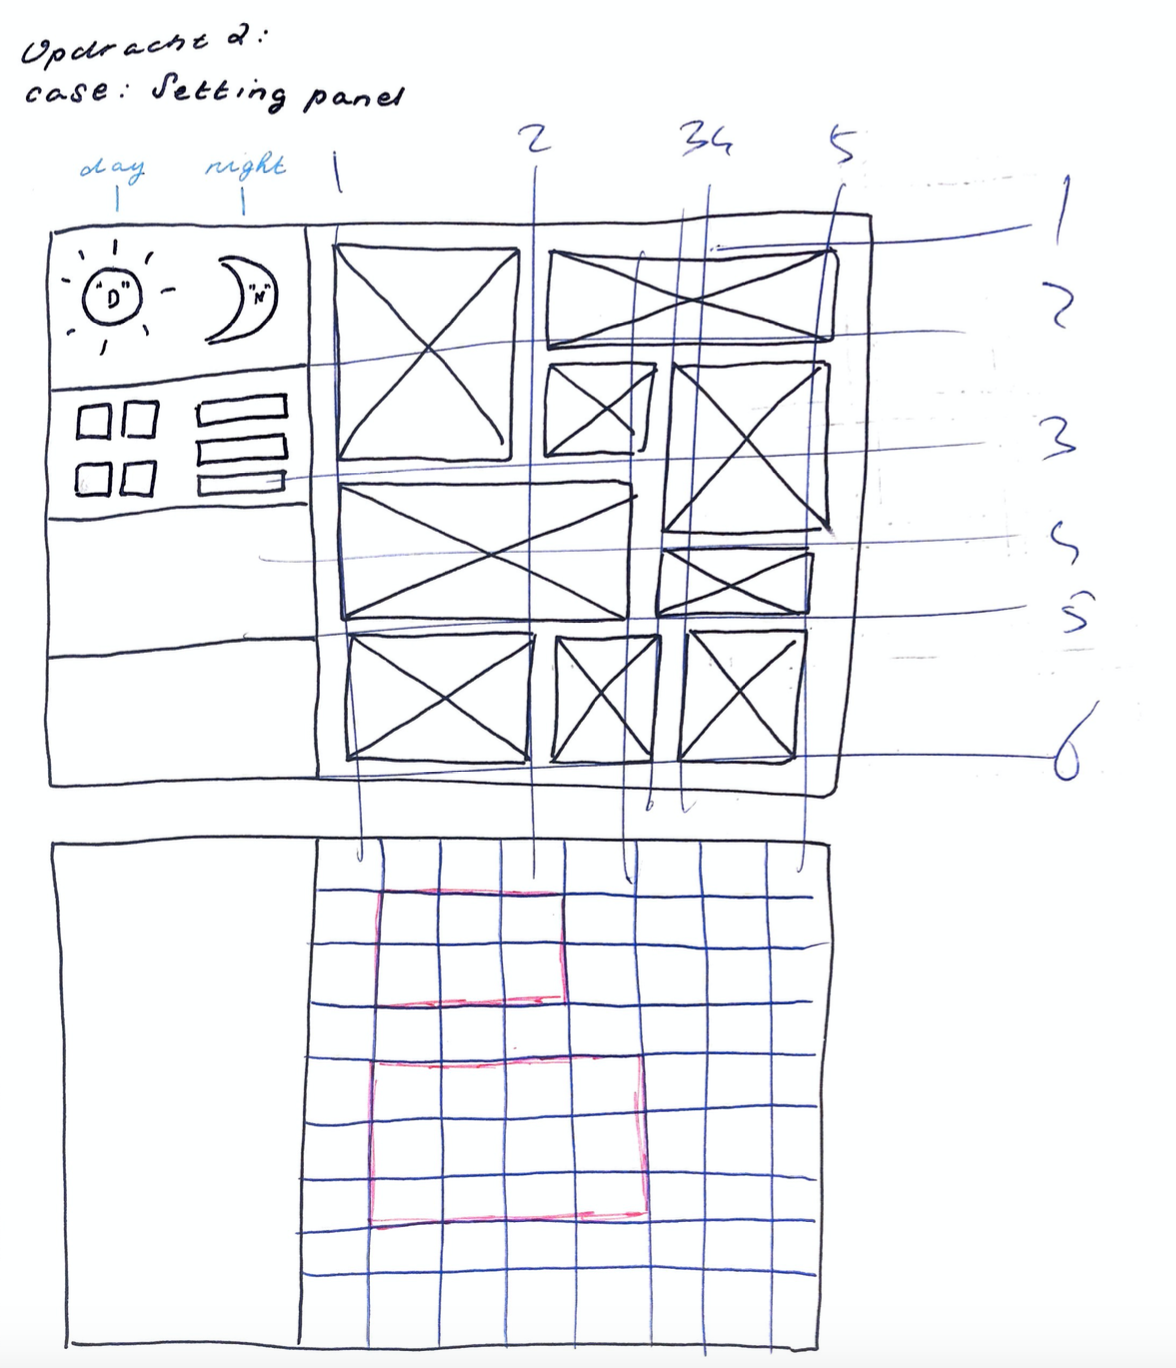 Opdracht 2:
case: Setting panel
day night 1 2 3 4 5
1
"D" "N"
2
3
4
5
6